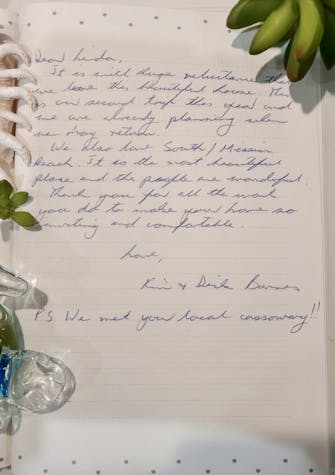 Dear Linda,
It is with huge reluctance that
we leave this beautiful house. This
is our second trip this year and
we are already planning when
we may return.
We also love South/Mission
Beach. It is the most beautiful
place and the people are wonderful
Thank you for all the work
you do to make your home so
inviting and comfortable.
Love,
Kim & Barnes
PS We met your local cassowary!!